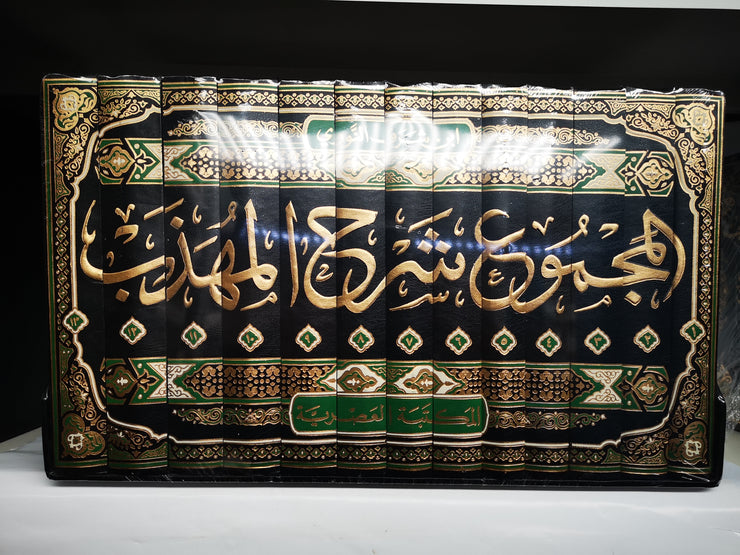 النووي
المجموع شرح المهذب
١ ٢ ٣ ٤ ٥ ٦ ٧ ٨ ٩ ١٠ ١١ ١٢ ١٣
المكتبة العصرية